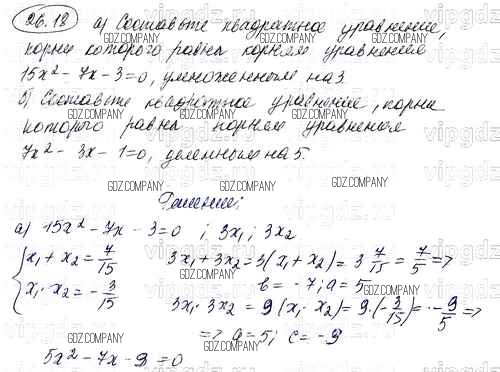 26.18 а) Составьте квадратное уравнение,
корни которого равны корням уравнения
15x² - 7x - 3 = 0, умноженным на 3.
б) Составьте квадратное уравнение, корни
которого равны корням уравнения
7x² - 3x - 1 = 0, деленным на 5.
Решение:
а) 15x² - 7x - 3 = 0 ; 3x₁ ; 3x₂
{ x₁ + x₂ = 7/15   3x₁ + 3x₂ = 3(x₁ + x₂) = 3 7/15 = 7/5 =>
b = -7; a = 5
x₁ · x₂ = - 3/15   3x₁ · 3x₂ = 9(x₁ · x₂) = 9 · (- 3/15) = - 9/5 =>
=> a = 5; c = -9
5x² - 7x - 9 = 0
GDZ.COMPANY
vipgdz.ru